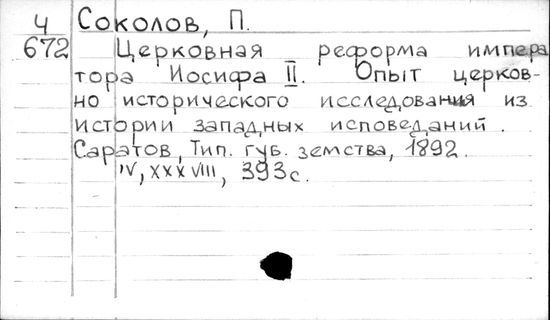 Ч Соколов, П.
672 Церковная реформа импера
тора Иосифа II. Опыт церков-
но исторического исследования из
истории западных исповеданий.
Саратов, Тип. губ. земства, 1892.
IV, XXXVIII, 393с.